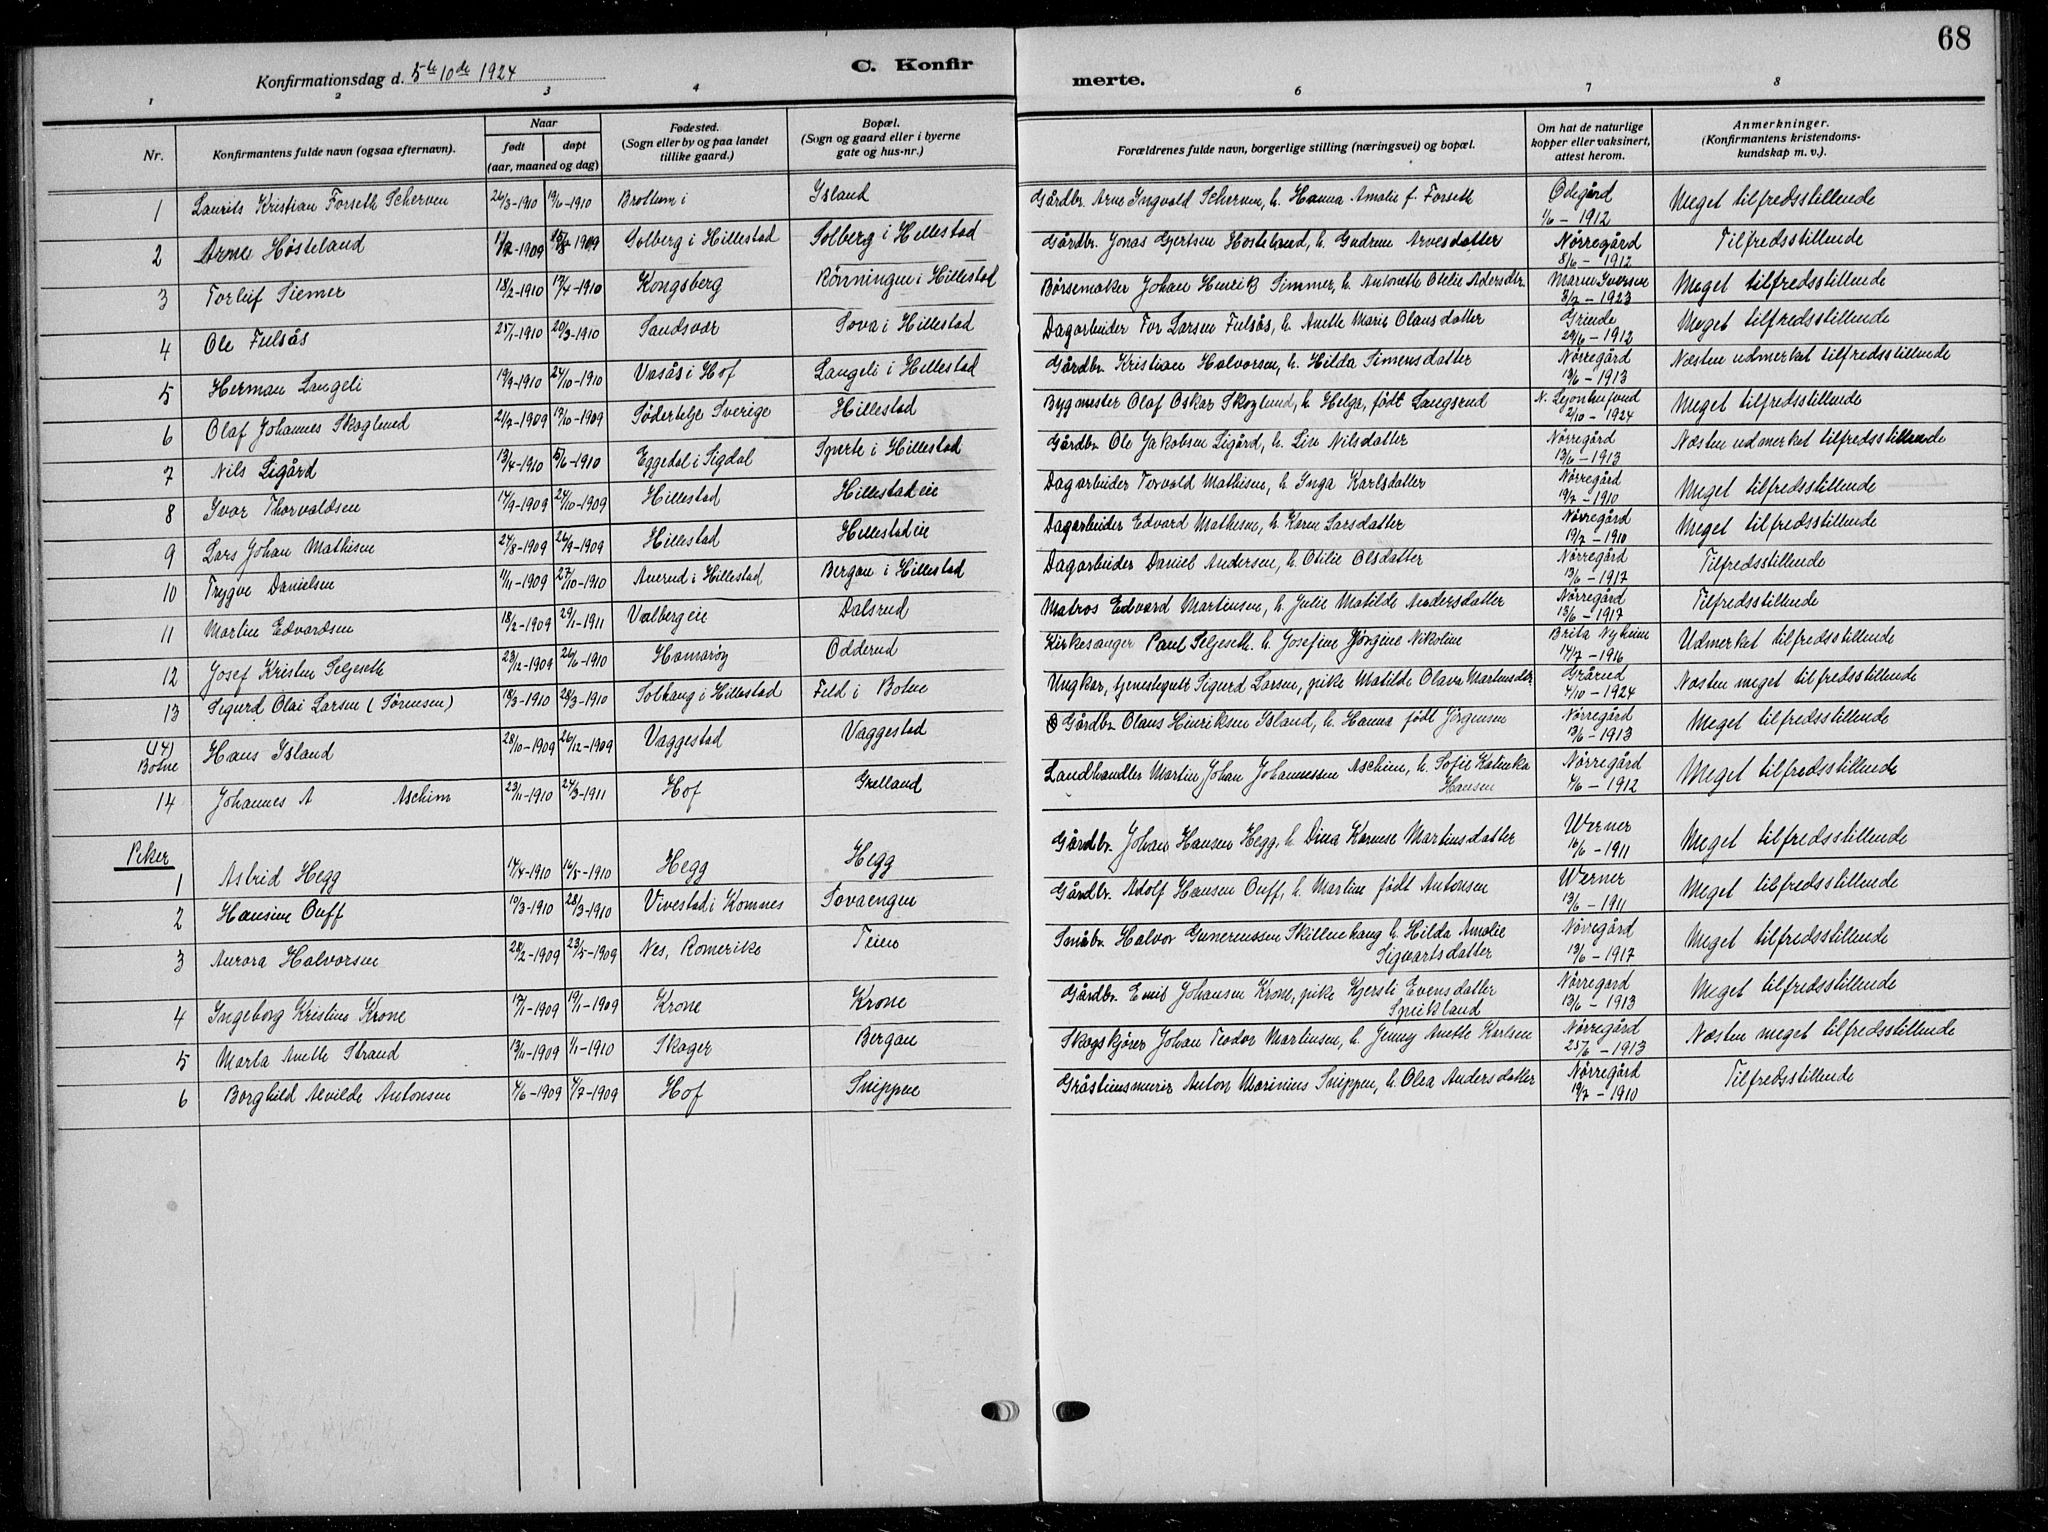 68
Konfirmationsdag d. 5te 10de 1924
C. Konfirmerte.
1 2 3 4 5 6 7 8
Nr.
Konfirmantens fulde navn (ogsaa efternavn).
Naar
født
døpt
(aar, maaned og dag)
Fødested.
(Sogn eller by og paa landet
tillike gaard.)
Bopæl.
(Sogn og gaard eller i byerne
gate og hus-nr.)
Forældrenes fulde navn, borgerlige stilling (næringsvei) og bopæl.
Om hat de naturlige
kopper eller vaksinert,
attest herom.
Anmerkninger.
(Konfirmantens kristendoms-
kundskap m. v.).
1 Laurits Kristian Forseth Scherven 26/3-1910 19/6-1910 Brottum i Island Gårdbr. Arne Ingvald Scherven, h. Hanna Amalie f. Forseth Ødegård 1/6-1912 Meget tilfredsstillende
2 Arne Høsteland 1909 1909 Solberg i Hillestad Solberg i Hillestad Gårdbr. Jonas Gjertsen Høsteland, h. Gudrun Arvesdatter Nørregård 8/6-1912 Tilfredsstillende
3 Torleif Siemer 18/2-1910 17/4-1910 Kongsberg Rønningen i Hillestad Børsemaker Johan Henrik Simmer, h. Antonette Otilie Adersdtr. Maren Iversen 3/7-1923 Meget tilfredsstillende
4 Ole Fulsås 25/1-1910 20/3-1910 Sandsvær Sova i Hillestad Dagarbeider Tor Larsen Fulsås, h. Anette Marie Olausdatter Grinde 29/6-1912 Meget tilfredsstillende
5 Herman Langeli 19/9-1910 24/10-1910 Vasås i Hof Langeli i Hillestad Gårdbr. Kristian Halvorsen, h. Hilda Simensdatter Nørregård 13/6-1913 Næsten udmerket tilfredsstillende
6 Olaf Johannes Skoglund 21/7-1909 17/10-1909 Södertelje Sverige Hillestad Bygmester Olaf Oskar Skoglund, h. Helga, født Langsrud N. Lejonhufvud 2/10-1924 Meget tilfredsstillende
7 Nils Ligård 13/4-1910 5/6-1910 Eggedal i Sigdal Sperte i Hillestad Gårdbr. Ole Jakobsen Ligård, h. Liv Nilsdatter Nørregård 13/6-1913 Næsten udmerket tilfredsstillende
8 Ivar Thorvaldsen 14/9-1909 24/10-1909 Hillestad Hillestadeie Dagarbeider Torvald Mathisen, h. Inga Karlsdatter Nørregård 19/7-1910 Meget tilfredsstillende
9 Lars Johan Mathisen 24/8-1909 26/9-1909 Hillestad Hillestadeie Dagarbeider Edvard Mathisen, h. Karen Larsdatter Nørregård 19/7-1910 Meget tilfredsstillende
10 Trygve Danielsen 11/11-1909 27/10-1910 Auerud i Hillestad Bergan i Hillestad Dagarbeider Daniel Andersen, h. Otilie Olsdatter Nørregård 13/6-1917 Tilfredsstillende
11 Martin Edvardsen 18/2-1909 29/1-1911 Valbergeie Dalsrud Matros Edvard Martinsen, h. Julie Matilde Andersdatter Nørregård 13/6-1917 Tilfredsstillende
12 Josef Kristen Seljeseth 23/12-1909 26/6-1910 Hamarøy Odderud Kirkesanger Paul Seljeseth h. Josefine Jørgine Nikoline Brita Nyheim 14/7-1916 Udmerket tilfredsstillende
13 Sigurd Olai Larsen (Sørensen) 18/3-1910 28/3-1910 Solhaug i Hillestad Feld i Botne Ungkar, tjenestegutt Sigurd Larsen, pike Matilde Olava Martinsdtr. Grårud 4/10-1924 Næsten meget tilfredsstillende
(14) Botne Hans Island 28/10-1909 26/12-1909 Vaggestad Vaggestad Gårdbr. Olaus Hinriksen Island, h. Hanna født Jørgensen Nørregård 13/6-1913 Meget tilfredsstillende
14 Johannes A Aschim 23/11-1910 24/3-1911 Hof Grelland Landhandler Martin Johan Johannessen Aschim, h. Sofie Katinka Hansen Nørregård 4/6-1912 Meget tilfredsstillende
Piker
1 Astrid Hegg 14/4-1910 14/5-1910 Hegg Hegg Gårdbr. Johan Hansen Hegg, h. Dina Karense Martinsdatter Werner 16/6-1911 Meget tilfredsstillende
2 Hansine Ouff 10/3-1910 28/3-1910 Vivestad i Komnes Sovaengen Gårdbr. Adolf Hansen Ouff, h. Martine født Antonsen Werner 13/6-1911 Meget tilfredsstillende
3 Aurora Halvorsen 28/2-1909 23/5-1909 Nes, Romerike Teien Småbr. Halvor Gunerenssen Skillenhaug h. Hilda Amalie Sigvartsdatter Nørregård 13/6-1917 Meget tilfredsstillende
4 Ingeborg Kristine Krone 17/1-1909 19/1-1909 Krone Krone Gårdbr. Emil Johansen Krone, pike Kjersti Evensdatter Speikland Nørregård 13/6-1913 Meget tilfredsstillende
5 Marta Anette Strand 13/11-1909 1/1-1910 Skoger Bergan Skogskjører Johan Teodor Martinsen, h. Jenny Anette Karlsen Nørregård 25/6-1913 Næsten meget tilfredsstillende
6 Borghild Alvilde Antonsen 4/6-1909 4/7-1909 Hof Snippen Gråstensmurer Anton Marinius Snippen, h. Olea Andersdatter Nørregård 19/7-1910 Tilfredsstillende